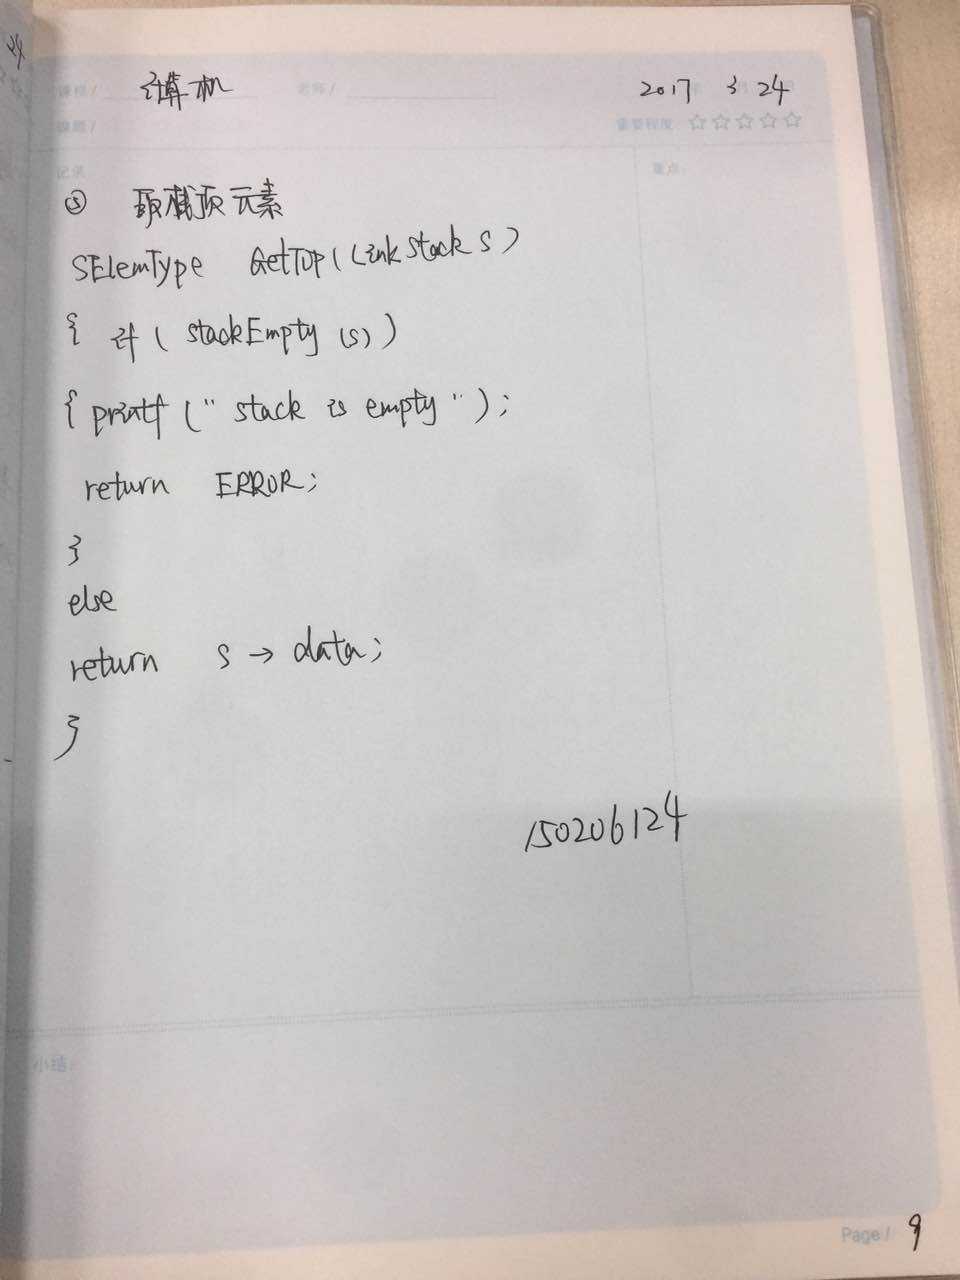 24
课程 / 计算机 老师 / 2017 年 3月24日
课题 / 重要程度 ☆☆☆☆☆
记录 重点:
⑤ 取栈顶元素
SElemType GetTop(LinkStack S)
{ if ( stackEmpty (s) )
{ printf (" stack is empty ");
return ERROR;
}
else
return s → data;
}
150206124
小结:
Page / 9